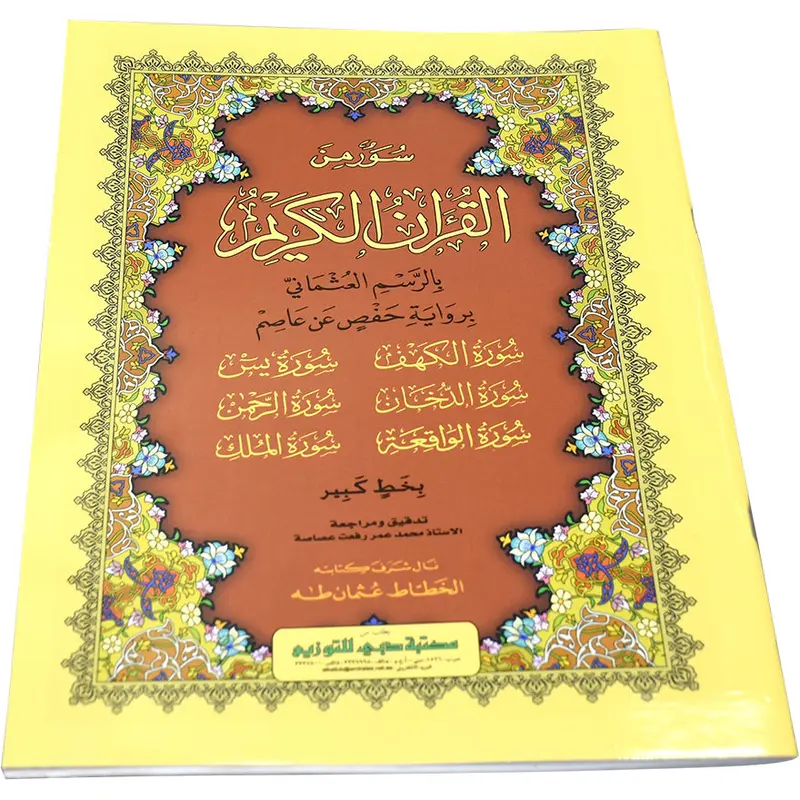 سُوَرٌ مِنَ
القُرْءَانِ الكَرِيمِ
بِالرَّسْمِ العُثْمَانِيّ
بِرِوَايَةِ حَفْصٍ عَن عَاصِمْ
سُورَةُ الكَهْف سُورَةُ يسٓ
سُورَةُ الدُّخَان سُورَةُ الرَّحْمن
سُورَةُ الوَاقِعَة سُورَةُ المُلك
بِخَطٍ كَبِير
تدقيق ومراجعة
الاستاذ محمد عمر رفعت عصاصة
نَال شَرَف كِتَابَه
الخَطّاط عُثمَان طه
يطلب من
مكتبة دبي للتوزيع